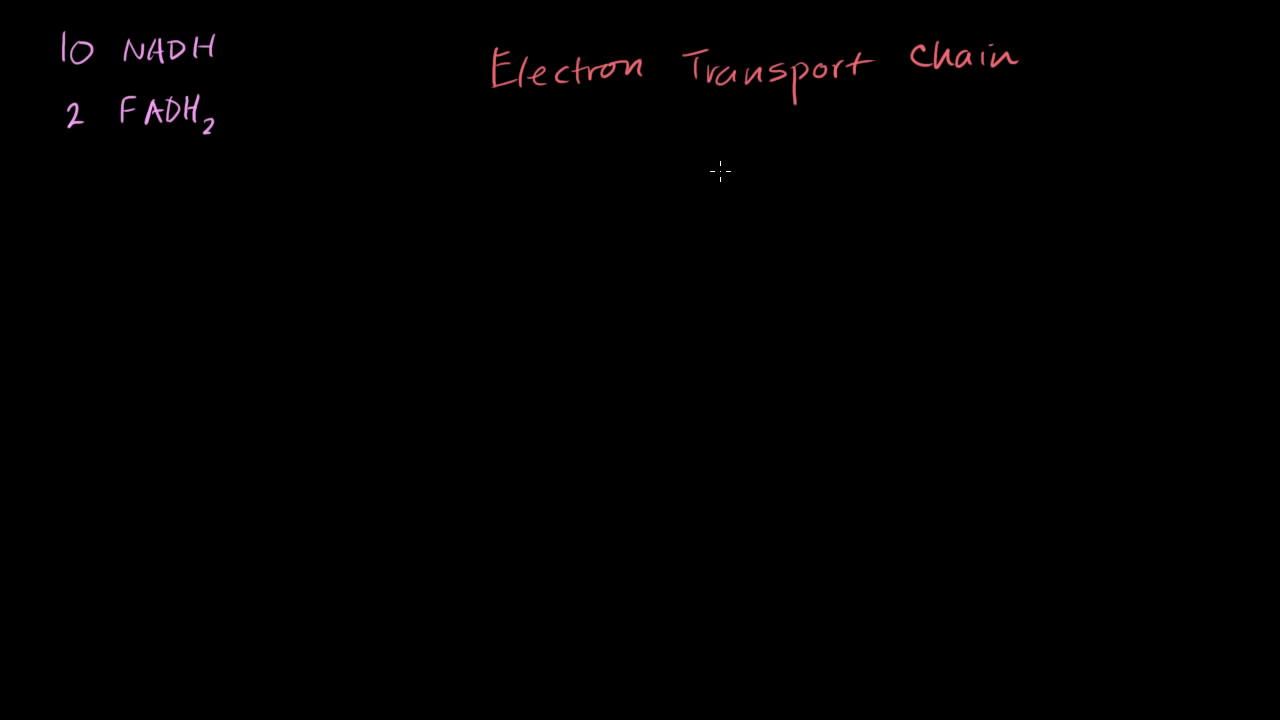 10 NADH
2 FADH₂
Electron Transport Chain